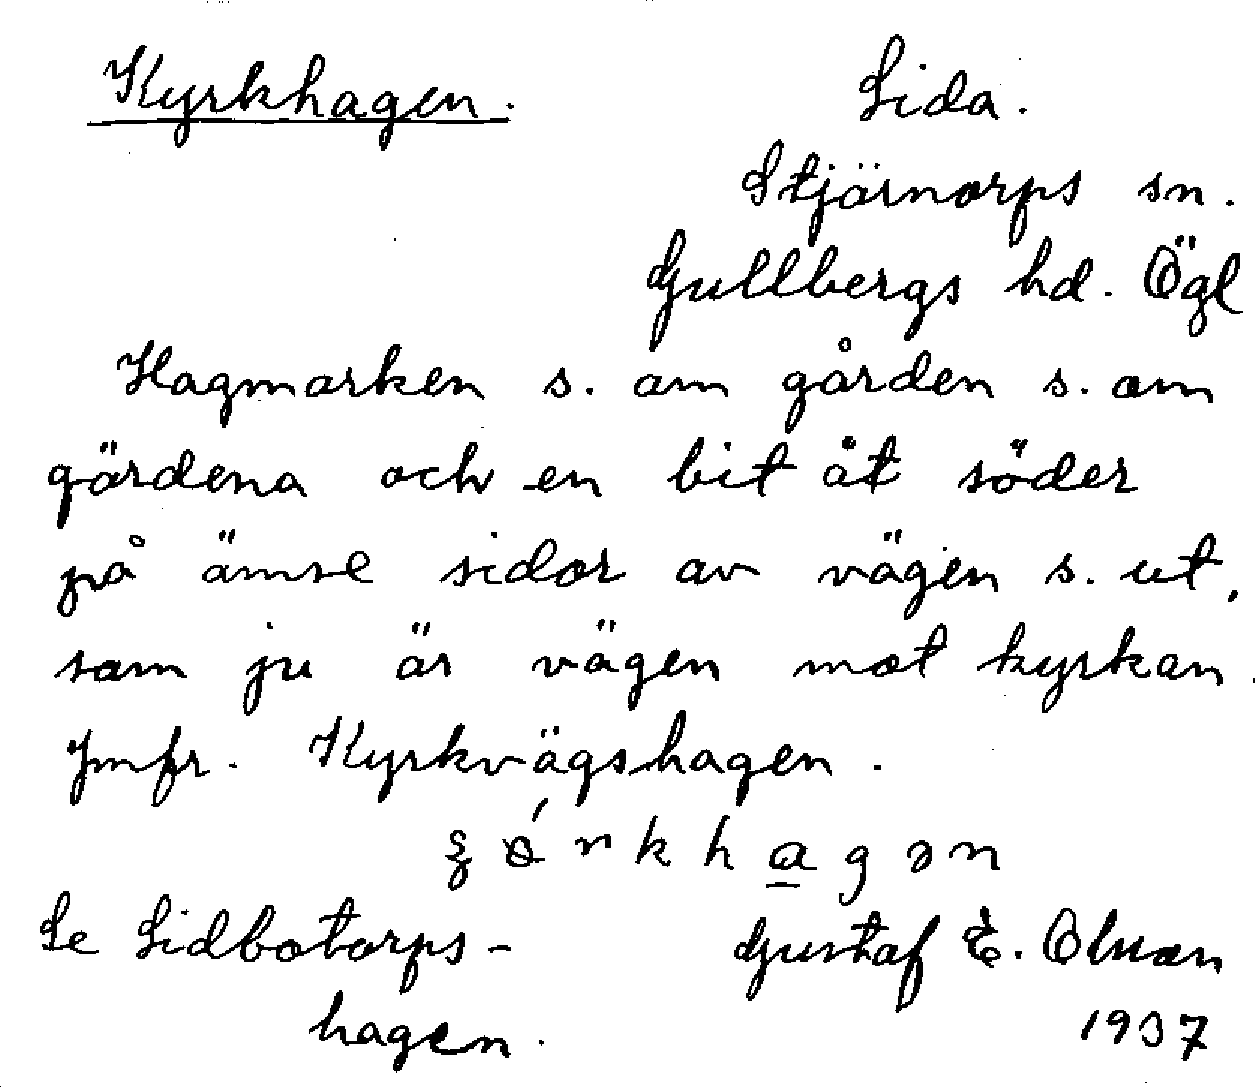 Kyrkhagen. Sida.
Stjärnorps sn.
Gullbergs hd. Ögl
Hagmarken s. om gården s. om
gärdena och en bit åt söder
på ömse sidor av vägen s. ut,
som ju är vägen mot kyrkan.
Jmfr. Kyrkvägshagen.
Se Sidbotorps- Gustaf E. Olson
hagen. 1937